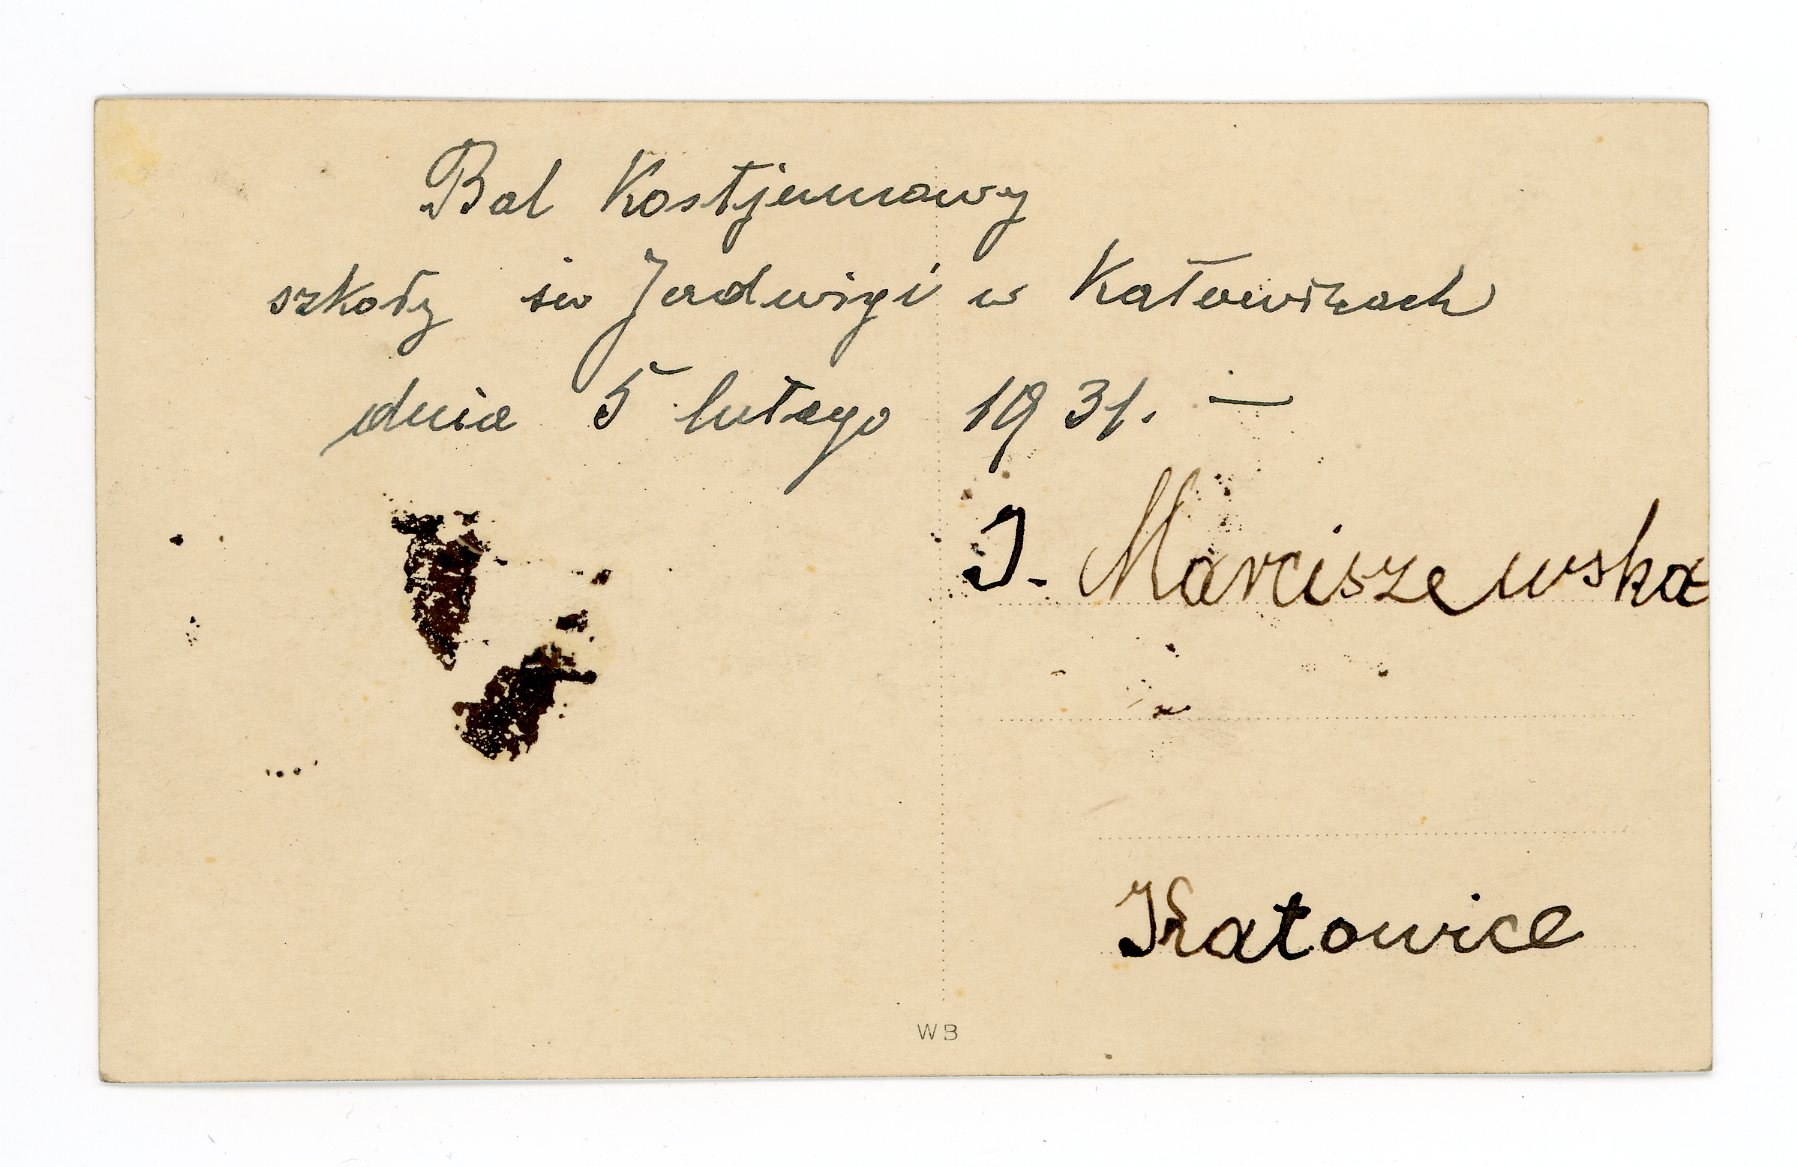 Bal Kostjumowy
szkoły św Jadwigi w Katowicach
dnia 5 lutego 1931. —
J. Marciszewska
Katowice
WB